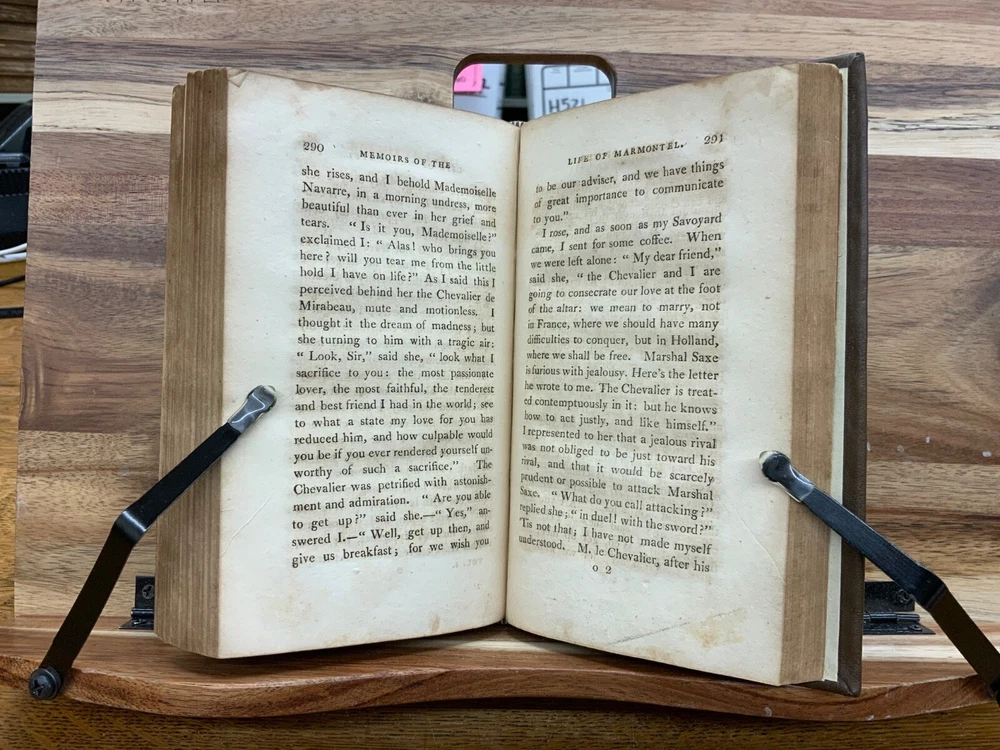 290
MEMOIRS OF THE
she rises, and I behold Mademoiselle
Navarre, in a morning undress, more
beautiful than ever in her grief and
tears. “ Is it you, Mademoiselle?”
exclaimed I: “ Alas! who brings you
here? will you tear me from the little
hold I have on life?” As I said this I
perceived behind her the Chevalier de
Mirabeau, mute and motionless. I
thought it the dream of madness; but
she turning to him with a tragic air:
“ Look, Sir,” said she, “ look what I
sacrifice to you: the most passionate
lover, the most faithful, the tenderest
and best friend I had in the world; see
to what a state my love for you has
reduced him, and how culpable would
you be if you ever rendered yourself un-
worthy of such a sacrifice.” The
Chevalier was petrified with astonish-
ment and admiration. “ Are you able
to get up?” said she.—“ Yes,” an-
swered I.—“ Well, get up then, and
give us breakfast; for we wish you
LIFE OF MARMONTEL. 291
to be our adviser, and we have things
of great importance to communicate
to you.”
I rose, and as soon as my Savoyard
came, I sent for some coffee. When
we were left alone: “ My dear friend,”
said she, “ the Chevalier and I are
going to consecrate our love at the foot
of the altar: we mean to marry, not
in France, where we should have many
difficulties to conquer, but in Holland,
where we shall be free. Marshal Saxe
is furious with jealousy. Here's the letter
he wrote to me. The Chevalier is treat-
ed contemptuously in it: but he knows
how to act justly, and like himself.”
I represented to her that a jealous rival
was not obliged to be just toward his
rival, and that it would be scarcely
prudent or possible to attack Marshal
Saxe. “ What do you call attacking?”
replied she; “ in duel! with the sword?”
'Tis not that; I have not made myself
understood. M. le Chevalier, after his
O 2
H521